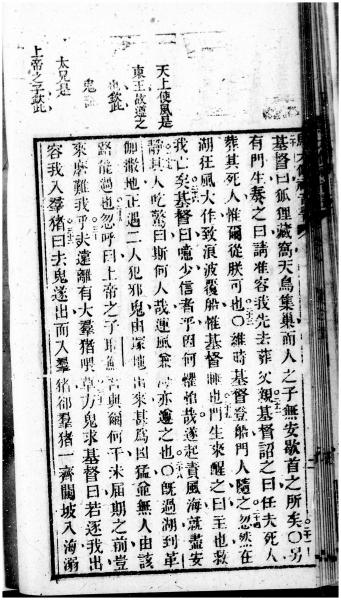 天上使風是
東王故遵之
也欽此
鬼
太兄是
上帝之子欽此
基督曰狐狸藏窩天鳥集巢而人之子無安歇首之所矣○另
有門生奏之曰請准容我先去葬父親基督詔之曰任夫死人
葬其死人惟爾從朕可也○維時基督登船門人隨之忽然在
湖狂風大作致浪波覆船惟基督睡也門生來醒之曰主也救
我亡矣基督曰噫少信者乎因何懼怕哉遂起責風海就盡安
靜其人吃驚曰斯何人哉連風兼海亦遵之也○旣過湖到革
撒地正遇二人犯邪鬼由塚地出來甚為凶猛竝無人由該
路能過也忽呼曰上帝之子耶與爾何干未屆期之前豈
來磨難我乎夫遠離有大羣猪喂草方鬼求基督曰若逐我出
容我入羣猪曰去鬼遂出而入羣猪卻羣猪一齊闖坡入海溺